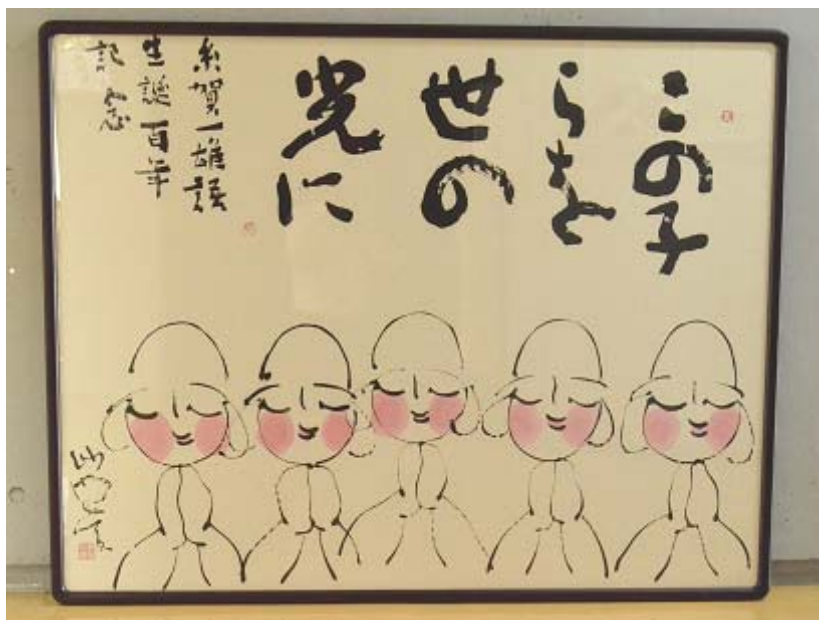 この子
らを
世の
光に
糸賀一雄語
生誕百年
記念